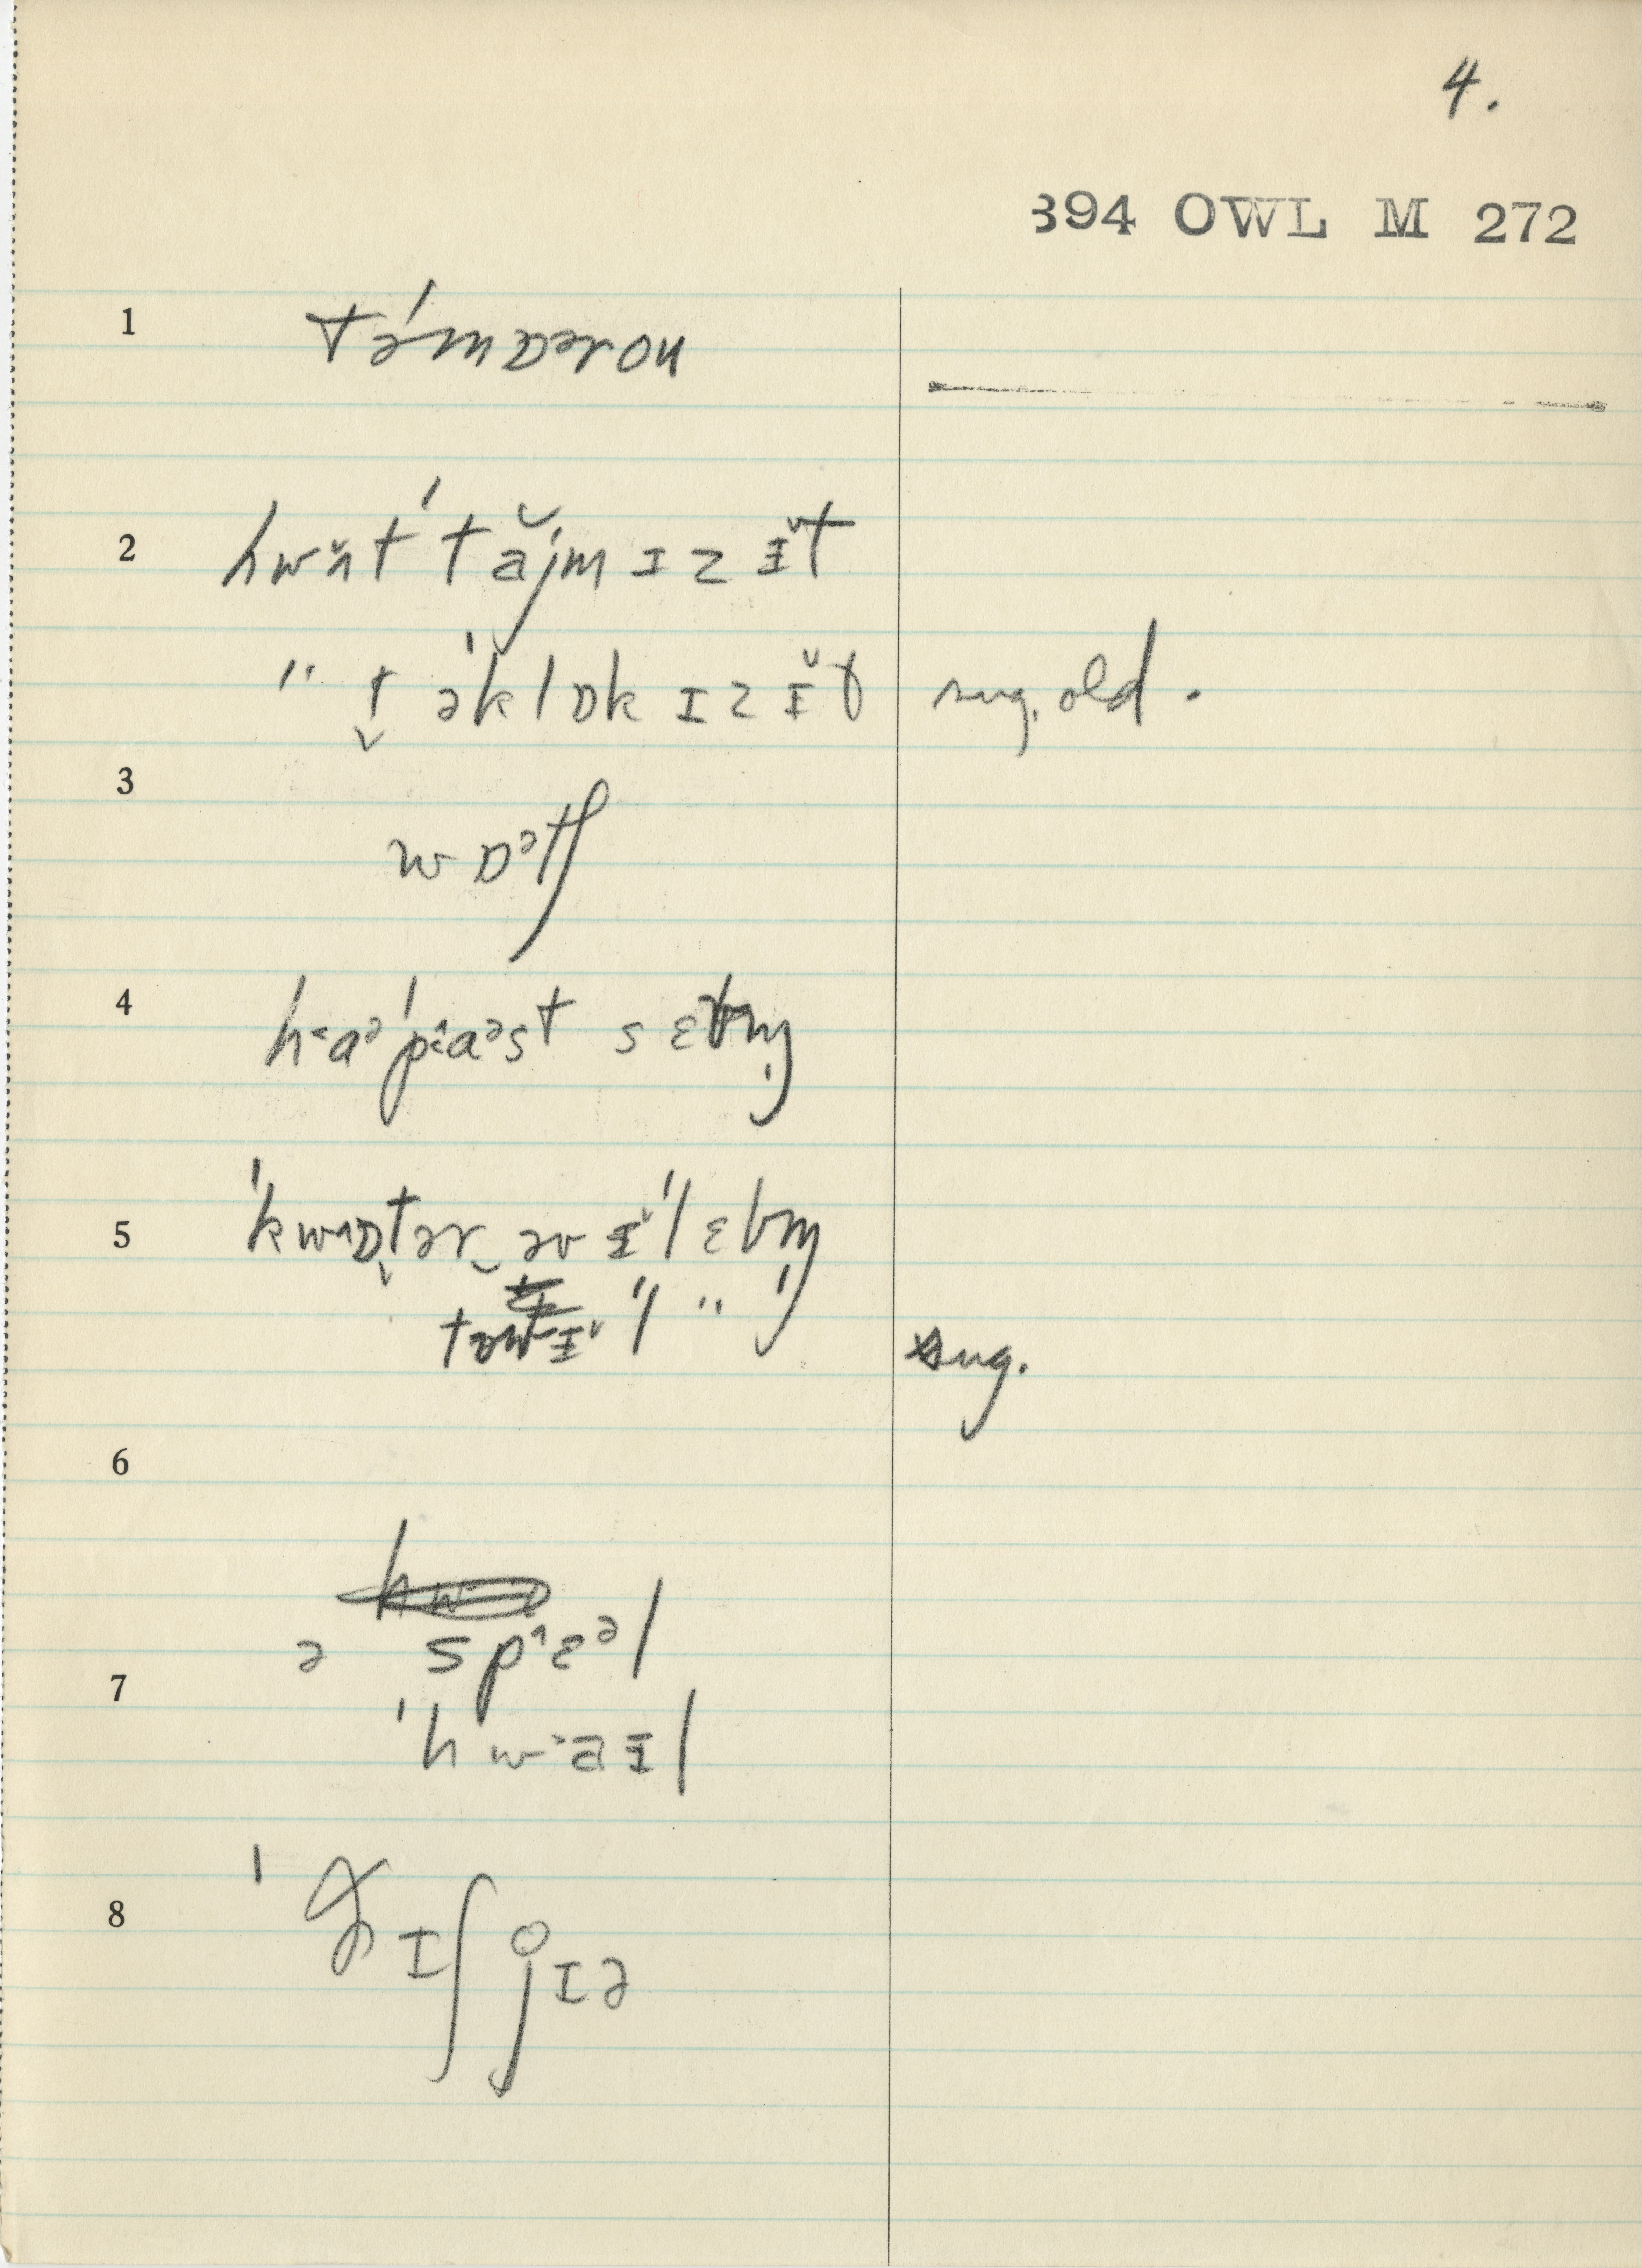 4.
394 OWL M 272
1 tə́mɒərou
2 hwʌ̌t ˈtăjm ɪz ɪ̌t
" t̬ əˈklɒk ɪz ɪ̌t sug. old.
3 wɒᵊtʃ
4 haᵊ ˈpaᵊst sɛvm̩
5 ˈkwɒt̬ər əv ɪ̌ˈlɛvm̩
ˈl " sug.
6
ə spɛᵊl
7 ˈhwaɪl
8 ˈðɪʃ jɪə